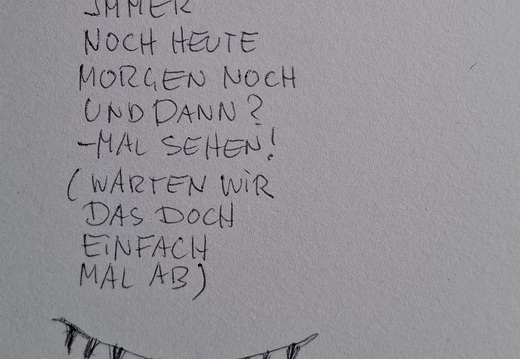 IMMER
NOCH HEUTE
MORGEN NOCH
UND DANN?
-MAL SEHEN!
(WARTEN WiR
DAS DOCH
EiNFACH
MAL AB)